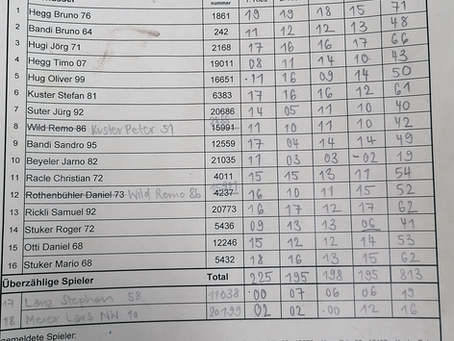 nummer
1 Hegg Bruno 76 1861 19 19 18 15 71
2 Bandi Bruno 64 242 11 12 12 13 48
3 Hugi Jörg 71 2168 17 16 16 17 66
4 Hegg Timo 07 19011 08 11 14 10 43
5 Hug Oliver 99 16651 11 16 09 14 50
6 Kuster Stefan 81 6383 17 16 16 12 61
7 Suter Jürg 92 20686 14 05 11 10 40
8 Wild Remo 86 Kuster Peter 51 15991 11 10 11 10 42
9 Bandi Sandro 95 12559 17 04 14 14 49
10 Beyeler Jarno 82 21035 11 03 03 02 19
11 Racle Christian 72 4011 15 15 13 11 54
12 Rothenbühler Daniel 73 Wild Remo 86 4237 16 10 11 15 52
13 Rickli Samuel 92 20773 16 17 12 17 62
14 Stuker Roger 72 5436 09 13 13 06 41
15 Otti Daniel 68 12246 15 12 12 14 53
16 Stuker Mario 68 5432 18 16 13 15 62
Überzählige Spieler Total 225 195 198 195 813
17 Lanz Stephan 58 11038 00 07 06 06 19
18 Meier Lars NW 10 80199 02 02 00 12 16
gemeldete Spieler: